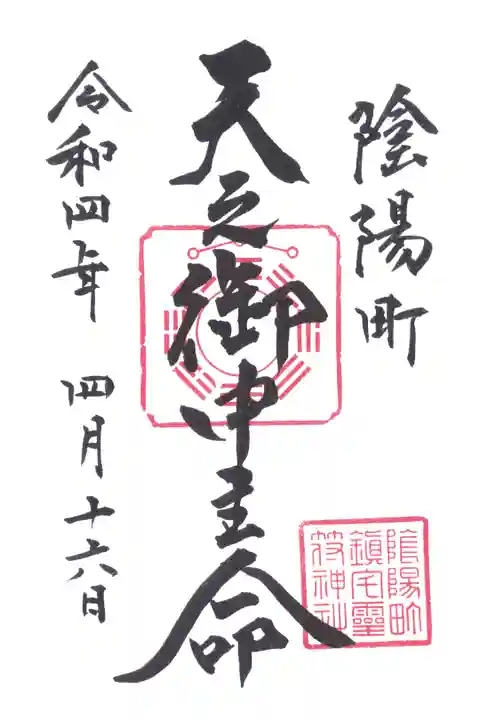 陰陽町
天之御中主命
令和四年 四月十六日
陰陽町
鎮宅霊
符神社